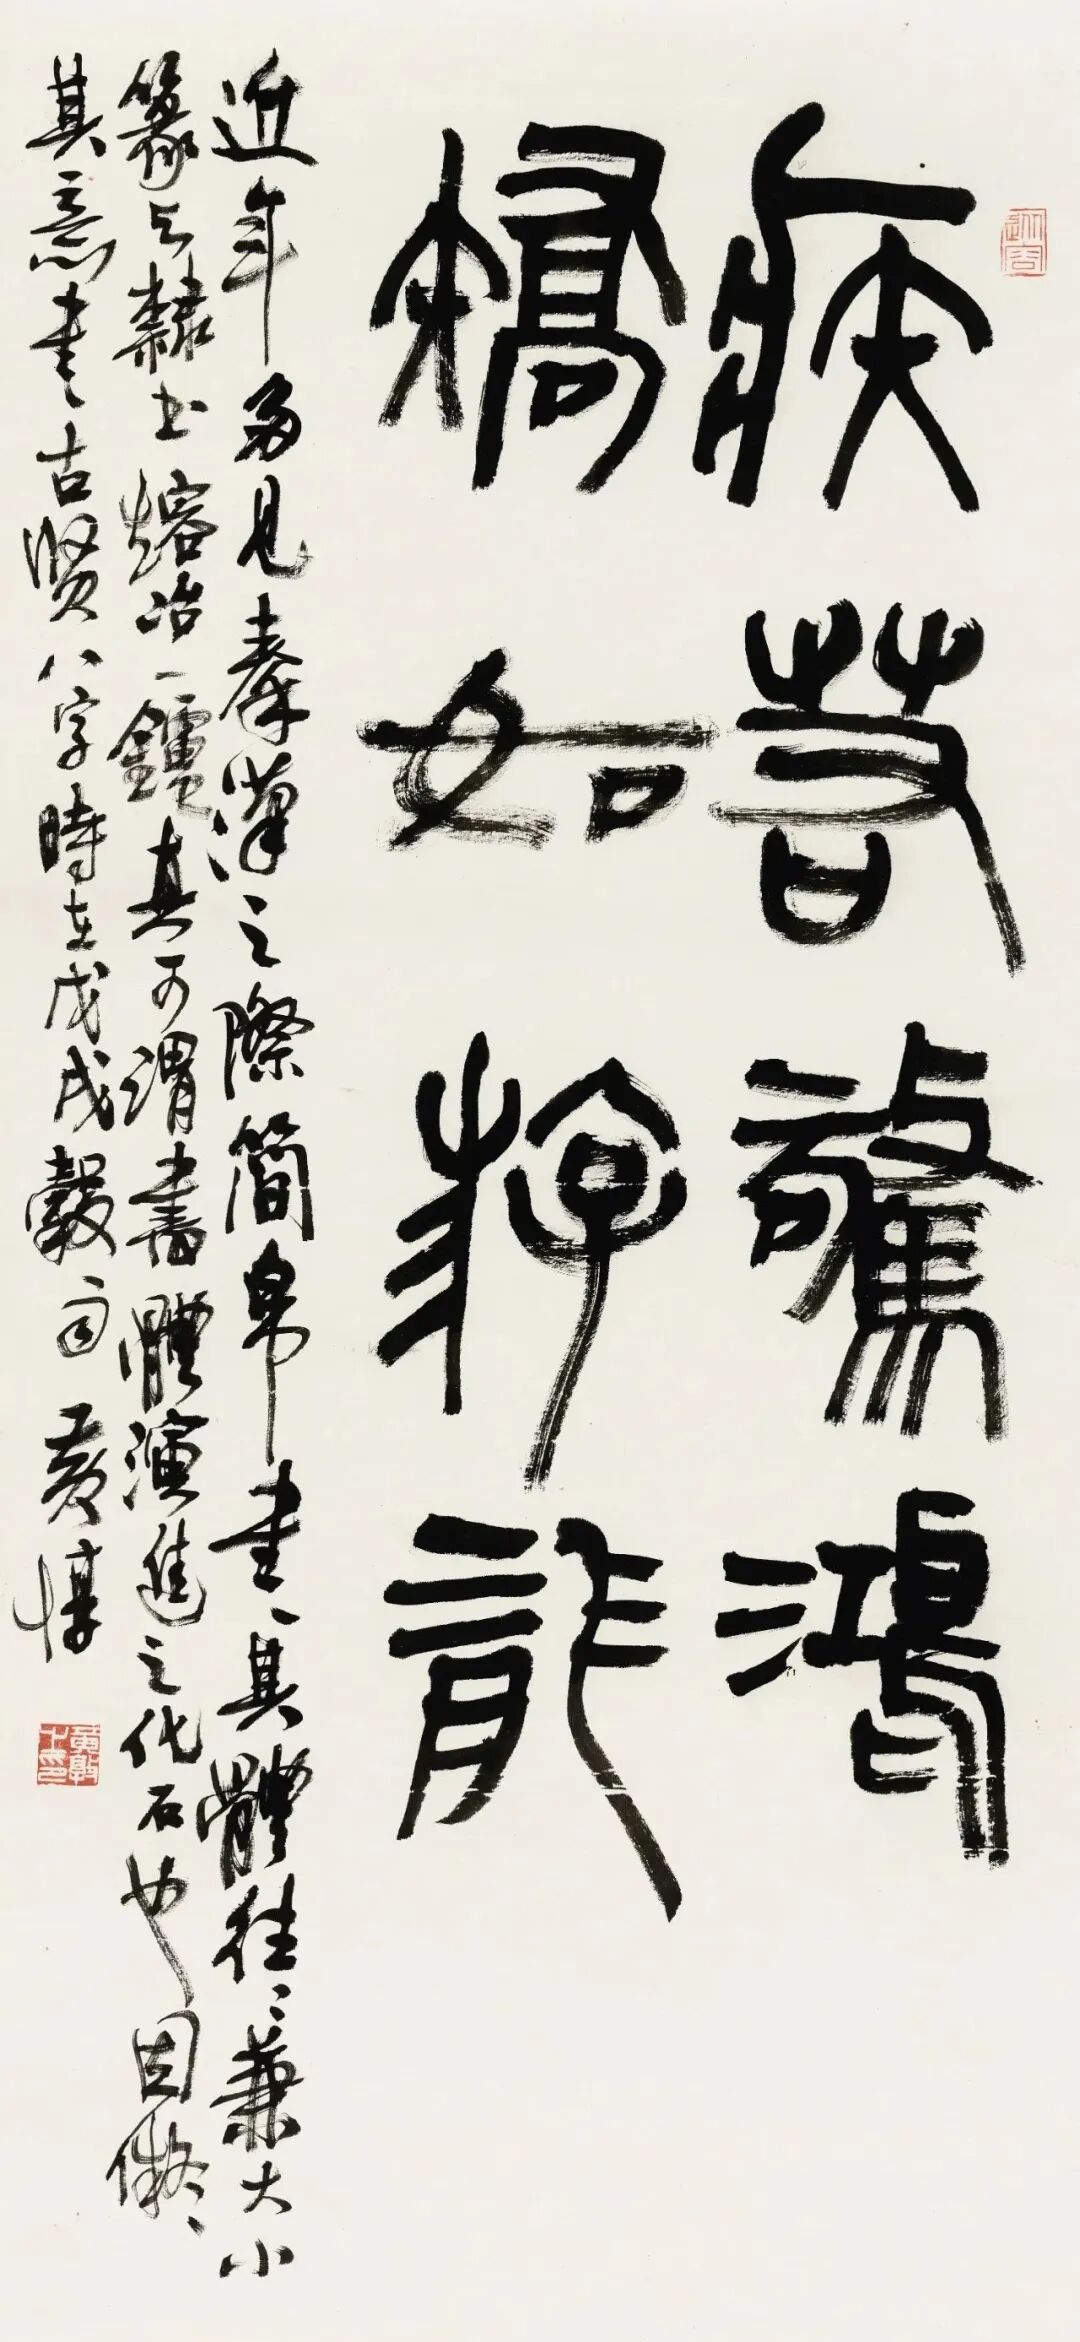 疾若驚鴻
矯如斿龍
近年多見秦漢之際簡帛書其體往往兼大小
篆与隸書熔冶一鑪真可謂書體演進之化石也因儗
其意書古賢八字時在戊戌穀雨黃惇